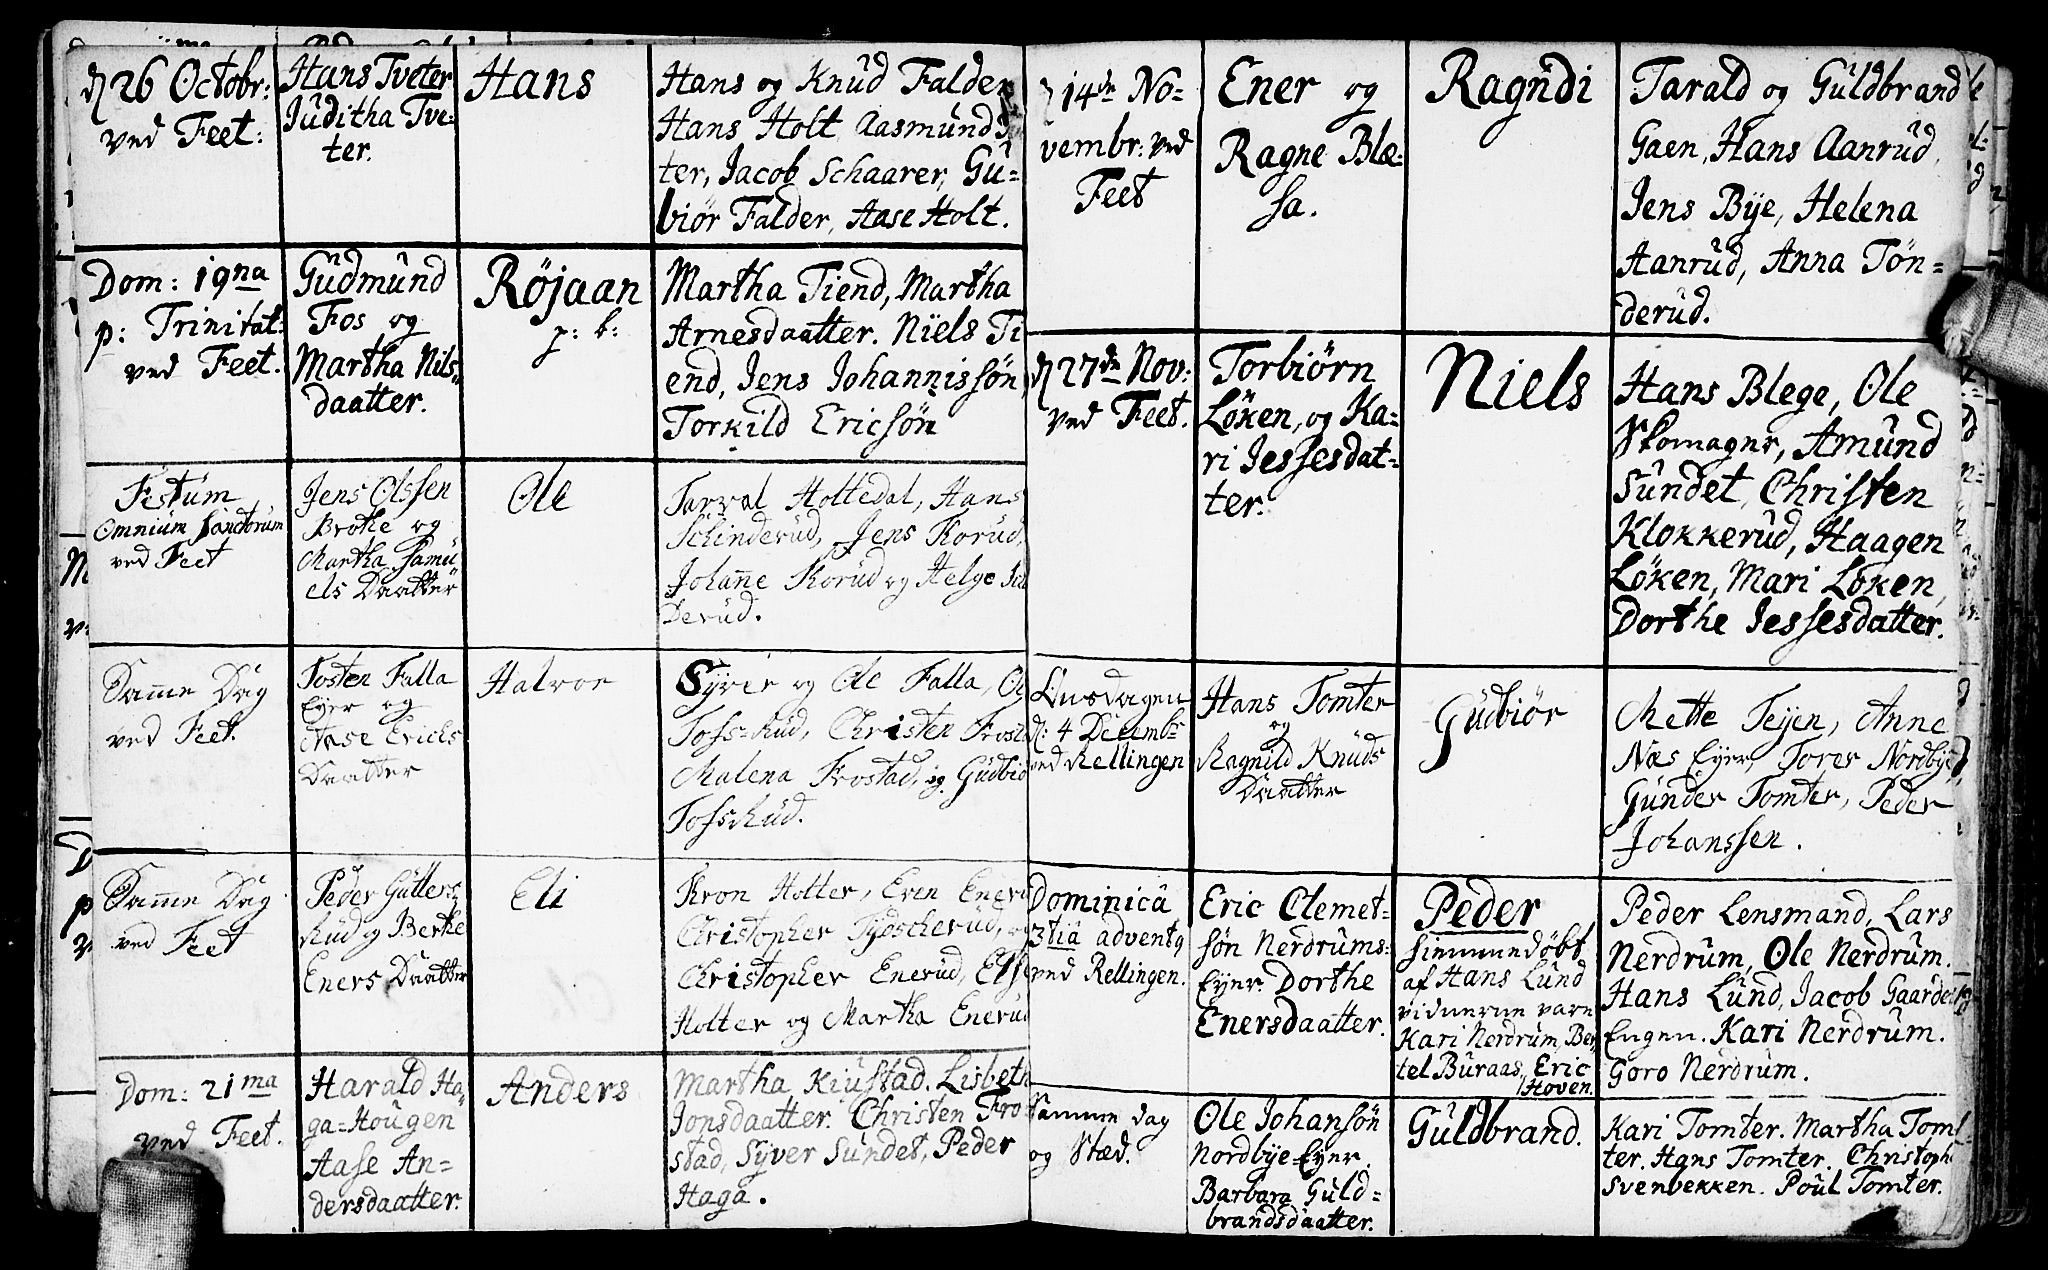 26 Octobr:
ved Feet:
Hans Tveter
Juditha Tve-
ter.
Hans
Hans og Knud Falder
Hans Holt Aasmund
ter, Jacob Schaarer, Gu-
biör Falder, Aase Holt.
Dom: 19na
p: Trinitat:
ved Feet.
Gudmund
Fos og
Martha Nils-
daatter.
Röjaan
p: b:
Martha Tiend, Martha
Arnesdaatter. Niels Ti
end, Jens Johannissön,
Torkild Ericsön
Festum
Omnium Sanctorum
ved Feet
Jens Olssen
Brothe og
Martha Samu
els Daatter
Ole
Tarval Holtedal, Hans
Schinderud, Jens Korud,
Johanne Korud og Helge
derud.
Samme Dag
ved Feet.
Tosten Falla
Eyer og
Aase Erichs
Daatter
Halvor
Syver og Ole Falla,
Tofsrud, Christen Frosta
Malena Frostad, og Gudbiö
Tofsrud.
Samme Dag
ved Feet
Peder Gulters-
rud og Berthe
Eners Daatter
Eli
Kron Holter, Even Eneru
Christopher Tydscherud,
Christopher Enerud, Else
Holter og Martha Enerud
Dom: 21ma
ved Feet.
Harald Ha-
ga-Hougen
Aase An-
dersdaatter.
Anders
Martha Kiustad. Lisbeth
Jonsdaatter. Christen Fro-
stad, Syver Sundet, Peder
Haga.
14de No-
vembr: ved
Feet
Ener og
Ragne Blæ-
sa.
Ragndi
Tarald og Guldbrand
Gaen, Hans Aanrud,
Jens Bye, Helena
Aanrud, Anna Tön-
derud.
27de Nov:
ved Feet.
Torbiörn
Löken, og Ka-
ri Jessesdat-
ter.
Niels
Hans Blege, Ole
Skomager, Amund
Sundet, Christen
Klokkerud, Haagen
Löken, Mari Löken,
Dorthe Jessesdatter.
Onsdagen
d: 4 Decembr
ved Rellingen
Hans Tomter
og
Ragnild Knuds
Daatter
Gudbiör
Mette Teyen, Anne
Næs Eyer, Torer Nordbye,
Gunder Tomter, Peder
Johanssen.
Dominica
3tia advent9
ved Rellingen.
Eric Clemet-
sön Nerdrums-
Eyer. Dorthe
Enersdaatter.
Peder
hiemmedöbt
af Hans Lund
vidnerne vare
Kari Nerdrum, Ber-
tel Buraas, Eric
Hoven.
Peder Lensmand, Lars
Nerdrum, Ole Nerdrum.
Hans Lund, Jacob Gaarder
Engen. Kari Nerdrum.
Goro Nerdrum.
Samme dag
og Stæd.
Ole Johansön
Nordbye Eyer
Barbara Guld-
brandsdaatter.
Guldbrand.
Kari Tomter. Martha Tom
ter. Hans Tomter. Christoph
Svenbekken. Poul Tomter.